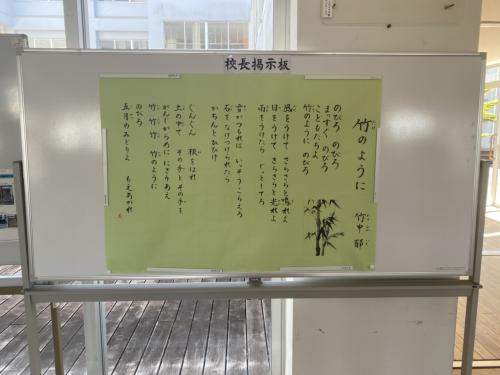 校長掲示板
竹のように
竹中郁
のびろ のびろ
まっすぐ のびろ
こどもたちよ
竹のように のびろ
風をうけて さらさらと鳴れよ
日をうけて きらきらと光れよ
雨をうけたら じっとしてろ
雪がつもれば いっそうこらえろ
石をなげつけられたら
かちんとひびけ
ぐんぐん 根をはれ
土の中で その手とその手を
がんじがらめに にぎりあえ
竹 竹 竹 竹のように
のびろ
五月のみどりよ もえあがれ